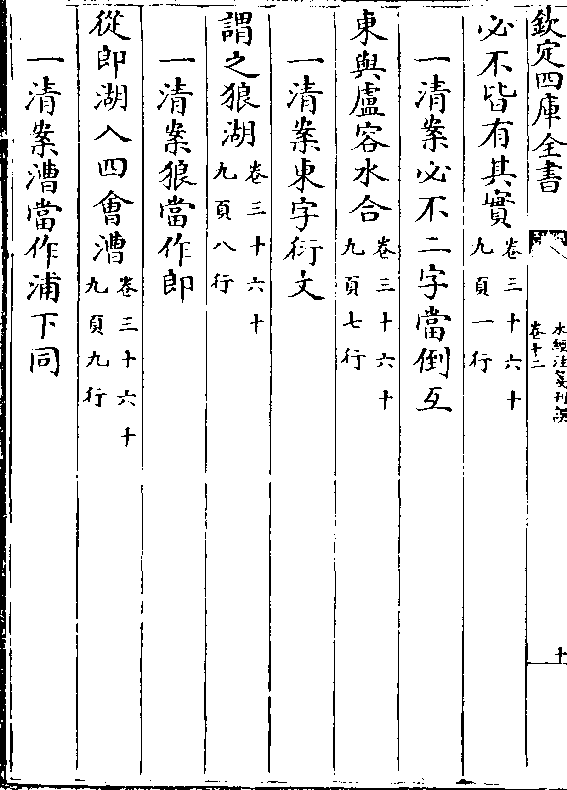 欽定四庫全書
水經注箋刊誤
卷十二
十
必不皆有其實卷三十六十九頁一行
一清案必不二字當倒互
東與盧容水合卷三十六十九頁七行
一清案東字衍文
謂之狼湖卷三十六十九頁八行
一清案狼當作郎
從郎湖入四會漕卷三十六十九頁九行
一清案漕當作浦下同